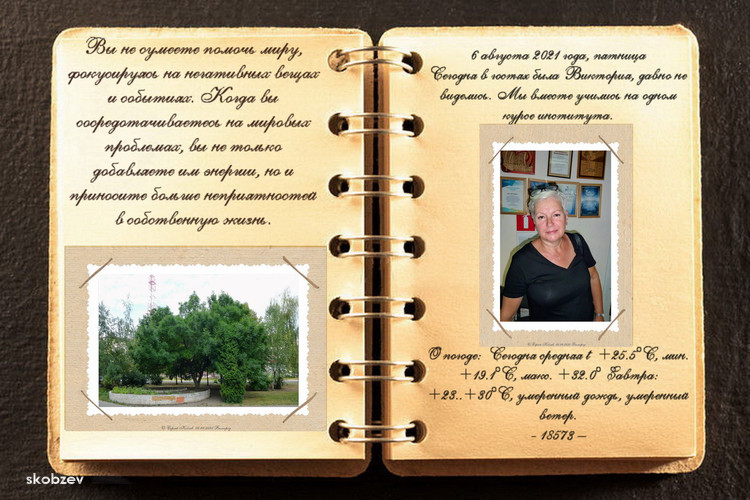 Вы не сумеете помочь миру,
фокусируясь на негативных вещах
и событиях. Когда вы
сосредотачиваетесь на мировых
проблемах, вы не только
добавляете им энергии, но и
приносите больше неприятностей
в собственную жизнь.
6 августа 2021 года, пятница
Сегодня в гостях была Виктория, давно не
виделись. Мы вместе учились на одном
курсе института.
О погоде: Сегодня средняя t +25.5° C, мин.
+19.1° C, макс. +32.0° Завтра:
+23..+30° C, умеренный дождь, умеренный
ветер.
- 18573 –
skobzev